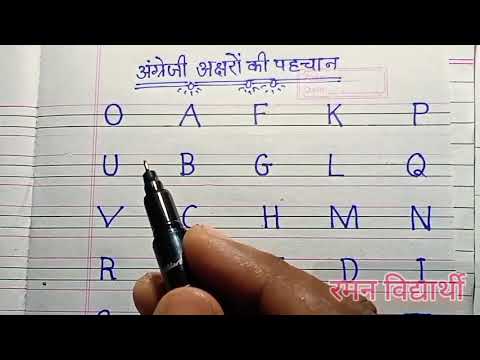 अंग्रेजी अक्षरों की पहचान
O A F K P
U B G L Q
V C H M N
R D I
रमन विद्यार्थी